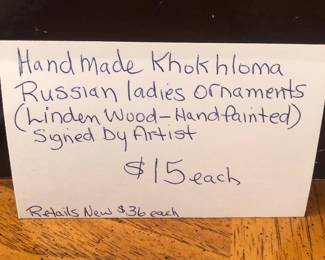 Hand Made Khokhloma
Russian ladies ornaments
(Linden Wood-Hand Painted)
Signed By Artist
$15 each
Retails New $36 each